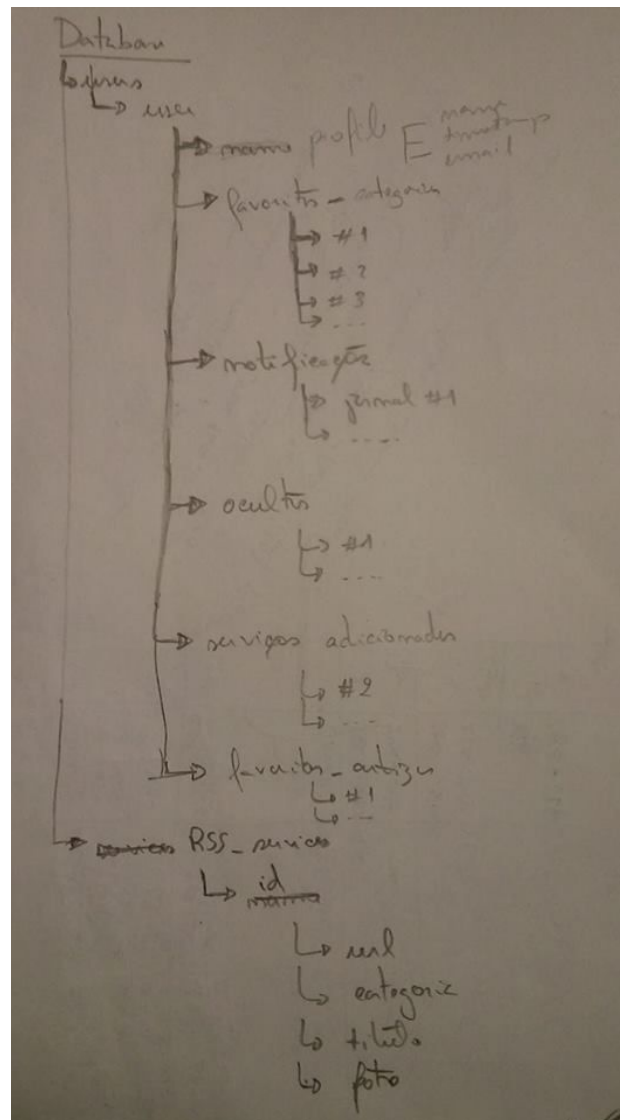 Database
users
user
profile
name
timestamp
email
favoritos_categoria
#1
#2
#3
....
notificação
jornal #1
.....
ocultos
#1
....
serviços adicionados
#2
....
favoritos_artigos
#1
....
RSS_services
id
url
categoria
titulo
foto